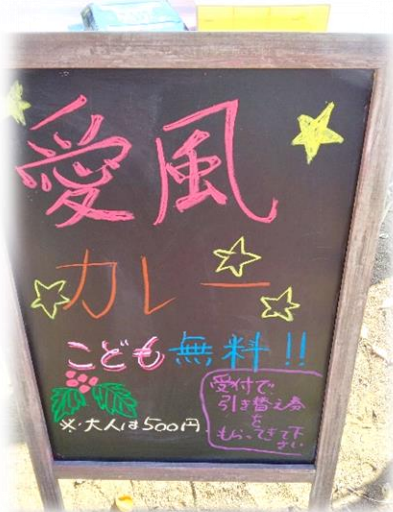 愛風
カレー
こども無料!!
※大人は500円
受付で
引き替え券
を
もらってきて下
さい